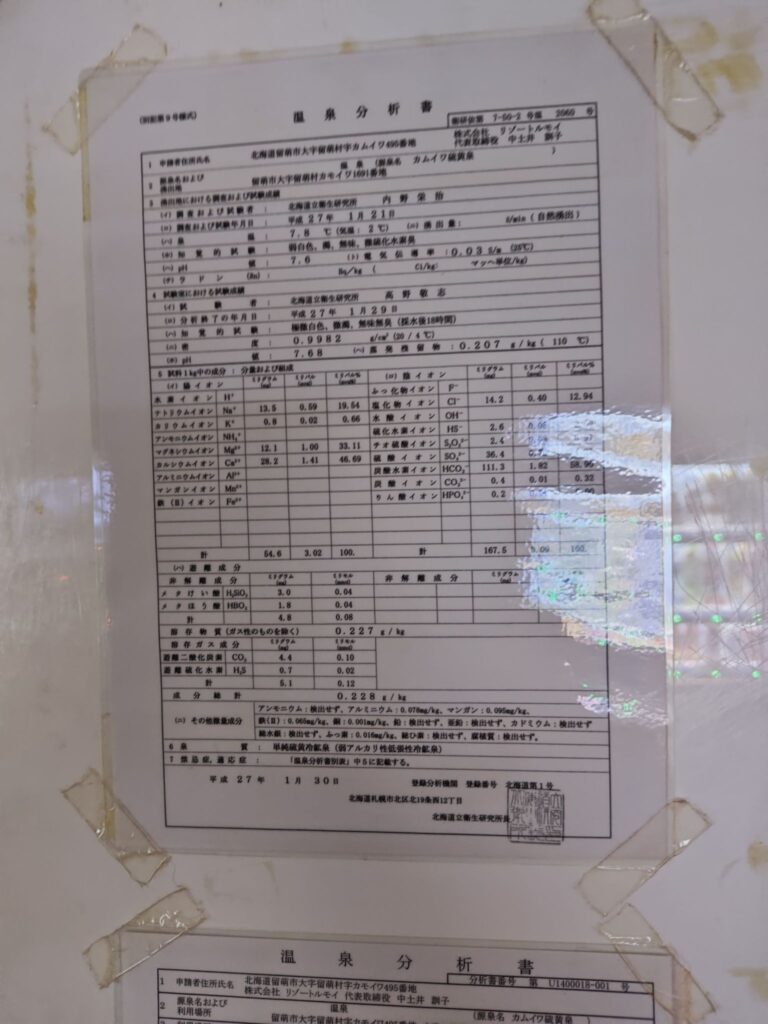 (別記第9号様式)
温泉分析書
衛研依第 7-56-2 号温 2060 号
1 申請者住所氏名 北海道留萌市大字留萌村字カムイワ495番地 株式会社 リゾートルモイ
代表取締役 中土井 訓子
2 源泉名および湧出地 温泉 (源泉名 カムイワ硫黄泉 )
留萌市大字留萌村カモイワ1691番地
3 湧出地における調査および試験成績
(イ) 調査および試験者 : 北海道立衛生研究所 内野 栄治
(ロ) 調査および試験年月日 : 平成 27年 1月 21日
(ハ) 泉温 : 7.8 ℃ (気温: 2℃) (ニ) 湧出量: ℓ/min (自然湧出)
(ホ) 知覚的試験 : 弱白色、濁、無味、微硫化水素臭
(ヘ) pH値 : 7.6 (ト) 電気伝導率: 0.03 S/m (25℃)
(チ) ラドン (Rn): Bq/kg ( Ci/kg: マッヘ単位/kg)
4 試験室における試験成績
(イ) 試験者 : 北海道立衛生研究所 高野 敬志
(ロ) 分析終了の年月日 : 平成 27年 1月 29日
(ハ) 知覚的試験 : 極微白色、微濁、無味無臭 (採水後18時間)
(ニ) 密度 : 0.9982 g/cm³ (20/4℃)
(ホ) pH値 : 7.68 (ヘ) 蒸発残留物: 0.207 g/kg ( 110 ℃)
5 試料1kg中の成分:分量および組成
(イ) 陽イオン ミリグラム (mg) ミリバル (mval) ミリバル% (mval%) (ロ) 陰イオン ミリグラム (mg) ミリバル (mval) ミリバル% (mval%)
水素イオン H⁺ ふっ化物イオン F⁻
ナトリウムイオン Na⁺ 13.5 0.59 19.54 塩化物イオン Cl⁻ 14.2 0.40 12.94
カリウムイオン K⁺ 0.8 0.02 0.66 水酸イオン OH⁻
アンモニウムイオン NH₄⁺ 硫化水素イオン HS⁻ 2.6
マグネシウムイオン Mg²⁺ 12.1 1.00 33.11 チオ硫酸イオン S₂O₃²⁻ 2.4
カルシウムイオン Ca²⁺ 28.2 1.41 46.69 硫酸イオン SO₄²⁻ 36.4
アルミニウムイオン Al³⁺ 炭酸水素イオン HCO₃⁻ 111.3 1.82 58.90
マンガンイオン Mn²⁺ 炭酸イオン CO₃²⁻ 0.4 0.01 0.32
鉄(Ⅱ)イオン Fe²⁺ りん酸イオン HPO₄²⁻ 0.2
計 54.6 3.02 100. 計 167.5 3.09 100.
(ハ) 遊離成分
非解離成分 ミリグラム (mg) ミリモル (mmol) 非解離成分 ミリグラム (mg)
メタけい酸 H₂SiO₃ 3.0 0.04
メタほう酸 HBO₂ 1.8 0.04
計 4.8 0.08
溶存物質 (ガス性のものを除く) 0.227 g/kg
溶存ガス成分 ミリグラム (mg) ミリモル (mmol)
遊離二酸化炭素 CO₂ 4.4 0.10
遊離硫化水素 H₂S 0.7 0.02
計 5.1 0.12
成分総計 0.228 g/kg
(ニ) その他微量成分 アンモニウム:検出せず、アルミニウム:0.078mg/kg、マンガン:0.095mg/kg、
鉄(Ⅱ):0.065mg/kg、銅:0.001mg/kg、鉛:検出せず、亜鉛:検出せず、カドミウム:検出せず
総水銀:検出せず、ふっ素:0.016mg/kg、総ひ素:検出せず、腐植質:検出せず。
6 泉質: 単純硫黄冷鉱泉 (弱アルカリ性低張性冷鉱泉)
7 禁忌症,適応症: 「温泉分析書別表」中5に記載する。
平成 27年 1月 30日 登録分析機関 登録番号 北海道第1号
北海道札幌市北区北19条西12丁目
北海道立衛生研究所長
温泉分析書
分析書番号 第 U1400018-001 号
1 申請者住所氏名 北海道留萌市大字留萌村字カモイワ495番地
株式会社 リゾートルモイ 代表取締役 中土井 訓子
2 源泉名および利用場所 温泉 (源泉名 カムイワ硫黄泉